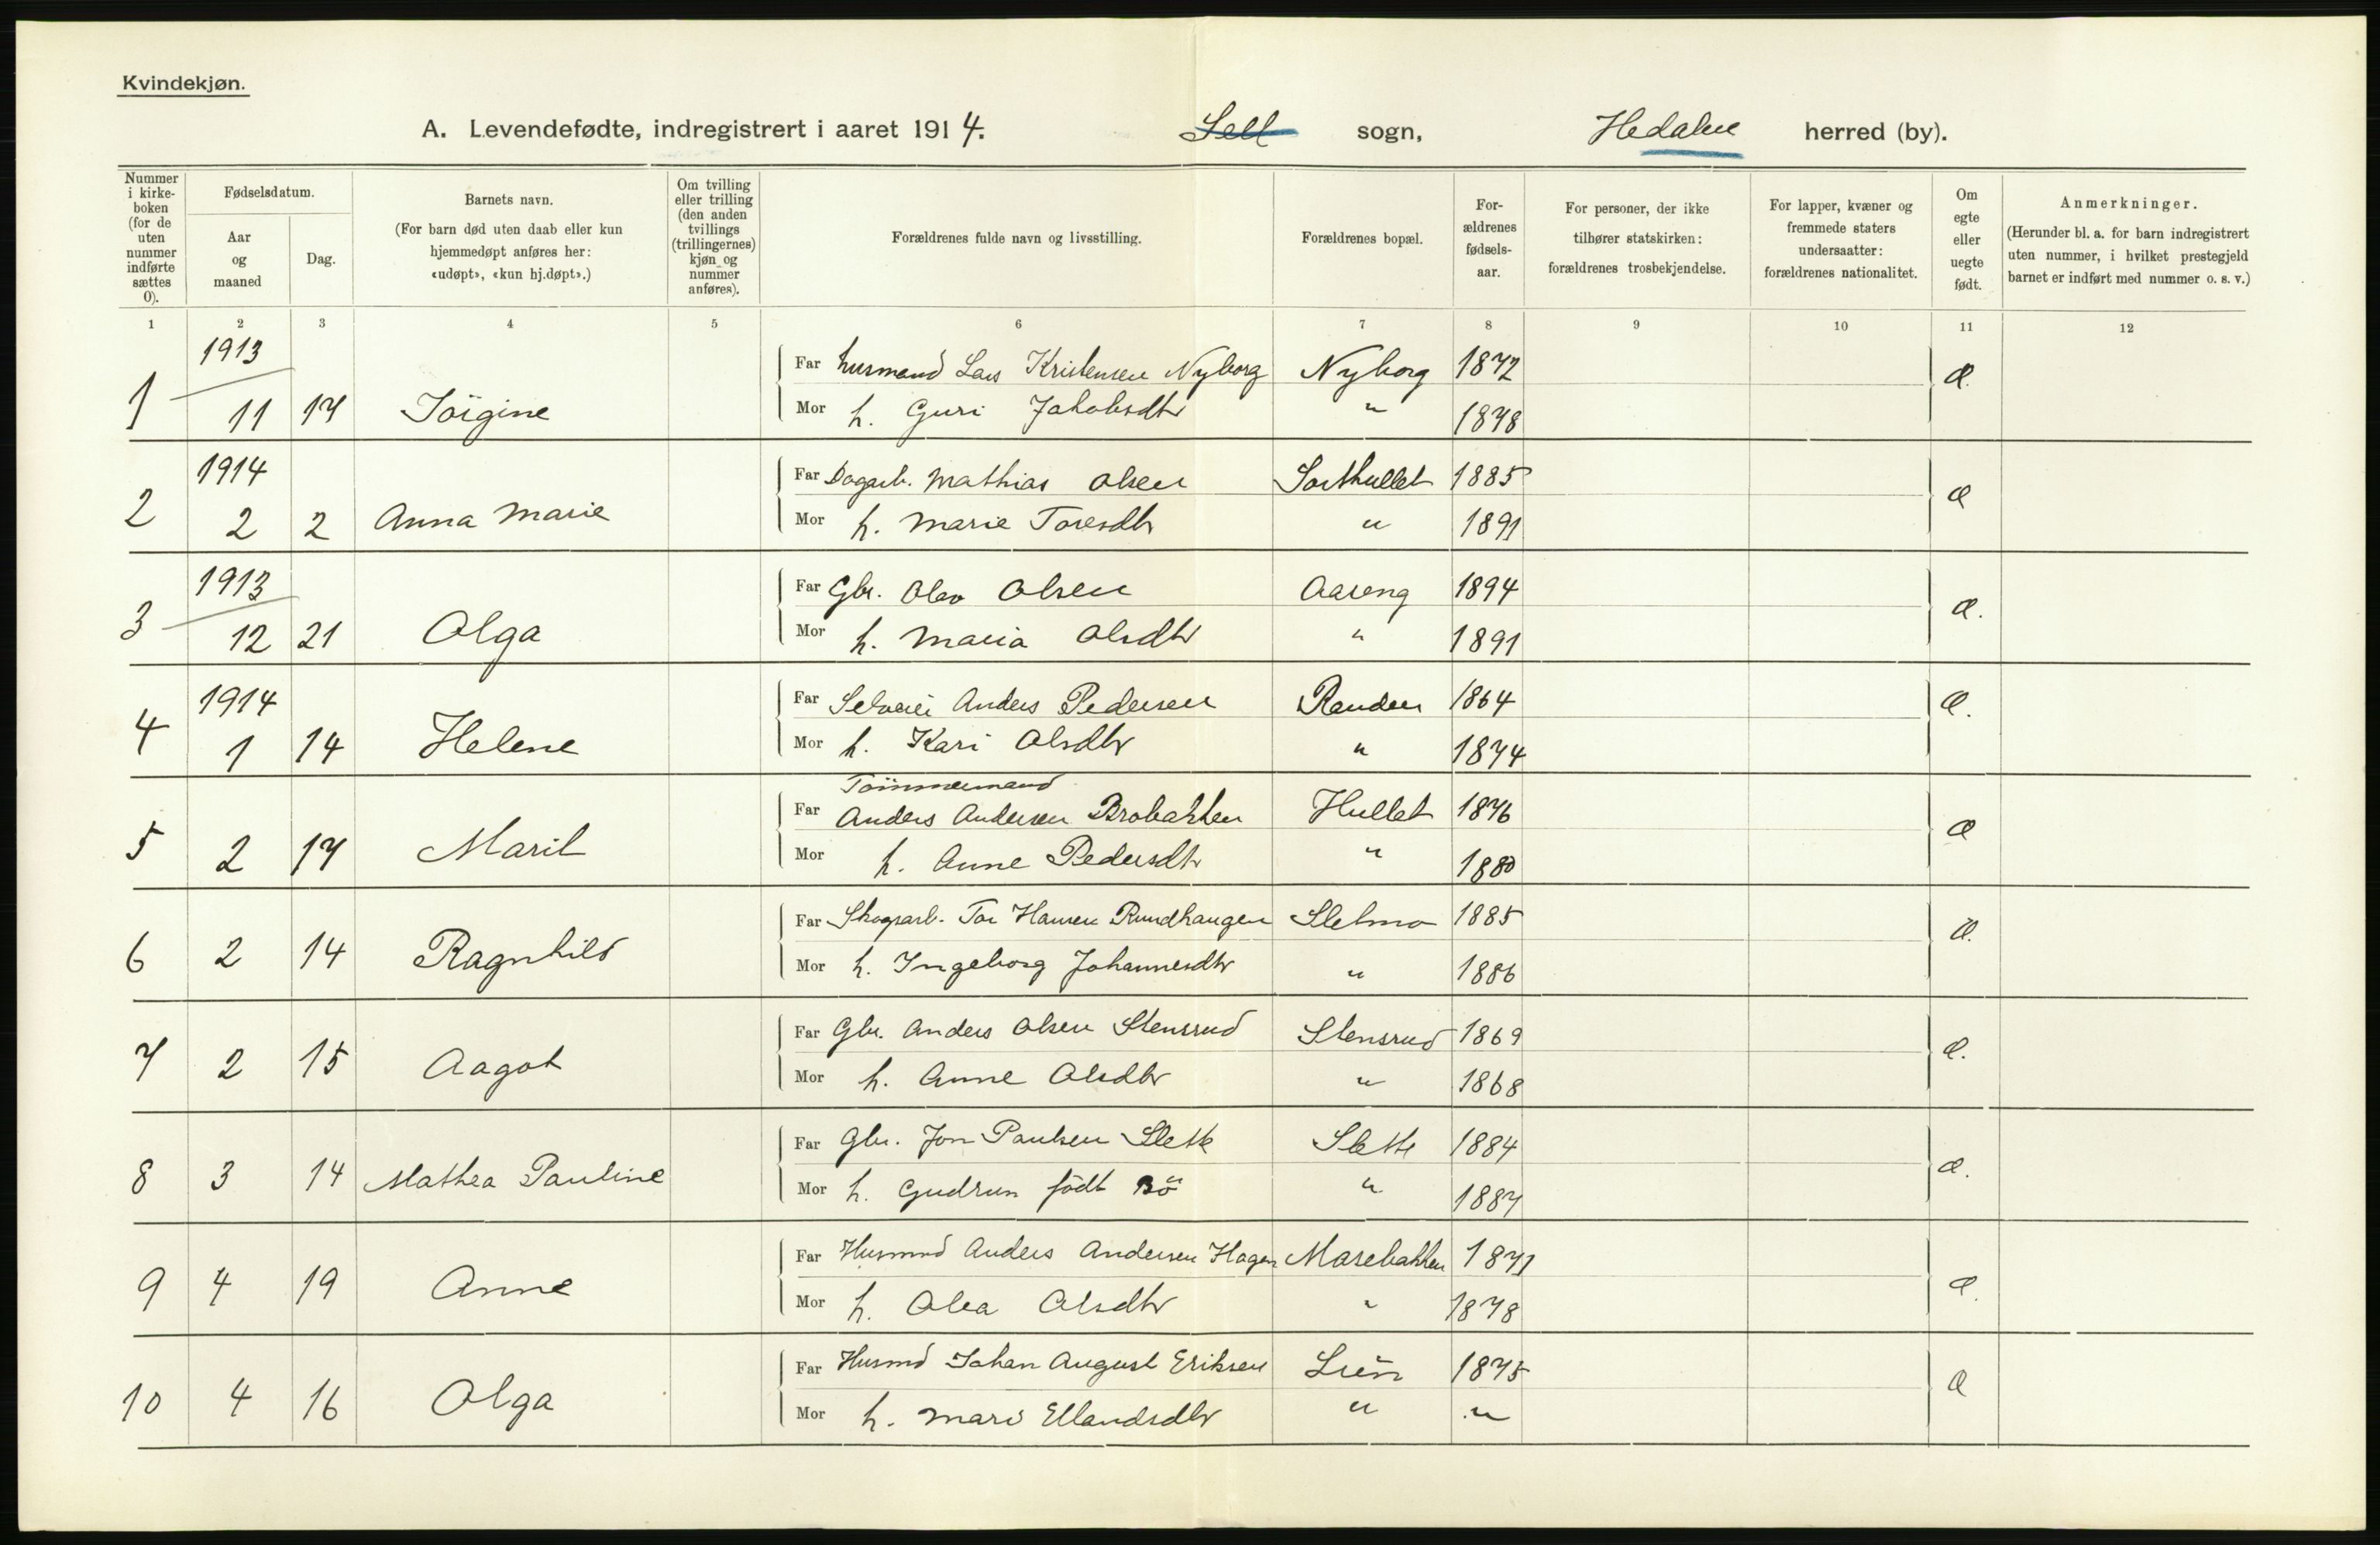 Kvindekjøn.
A. Levendefødte, indregistrert i aaret 1914. Sell sogn, Hedalen herred (by).
Nummer i kirke-boken (for de uten nummer indførte sættes 0).
Fødselsdatum.
Aar og maaned
Dag.
Barnets navn.
(For barn død uten daab eller kun hjemmedøpt anføres her: «udøpt», «kun hj.døpt».)
Om tvilling eller trilling (den anden tvillings (trillingernes) kjøn og nummer anføres).
Forældrenes fulde navn og livsstilling.
Forældrenes bopæl.
For-ældrenes fødsels-aar.
For personer, der ikke tilhører statskirken: forældrenes trosbekjendelse.
For lapper, kvæner og fremmede staters undersaatter: forældrenes nationalitet.
Om egte eller uegte født.
Anmerkninger.
(Herunder bl. a. for barn indregistrert uten nummer, i hvilket prestegjeld barnet er indført med nummer o. s. v.)
1 2 3 4 5 6 7 8 9 10 11 12
1913
Far husmand Lars Kristensen Nyborg Nyborg 1872 Æ.
1 11 17 Jöigine
Mor h. Guri Jakobsdtr " 1878
1914
Far Dagarb. Mathias Olsen Sorthullet 1885 Æ
2 2 2 Anna Marie
Mor h. Marie Toresdtr " 1891
1913
Far Gbr. Olav Olsen Aaseng 1894 Æ.
3 12 21 Olga
Mor h. Maria Olsdtr " 1891
1914
Far Selveier Anders Pedersen Randen 1864 Æ.
4 1 14 Helene
Mor h. Kari Olsdtr " 1874
Tömmermand
Far Anders Andersen Brobakken Hullet 1876 Æ
5 2 17 Marit
Mor h. Anne Pedersdtr " 1880
Far Skogsarb. Tor Hansen Rundhaugen Sletmo 1885 Æ.
6 2 14 Ragnhild
Mor h. Ingeborg Johannesdtr " 1886
Far Gbr. Anders Olsen Stensrud Stensrud 1869 Æ.
7 2 15 Aagot
Mor h. Anne Olsdtr " 1868
Far Gbr. Jon Paulsen Slette Slette 1884 Æ.
8 3 14 Mathea Pauline
Mor h. Gudrun födt Bö " 1887
Far Husmnd Anders Andersen Hagen Marebakken 1871 Æ.
9 4 19 Anne
Mor h. Olea Olsdtr " 1878
Far Husmd Johan August Eriksen 1875 Æ
10 4 16 Olga
Mor h. Mari Ellandsdtr " "